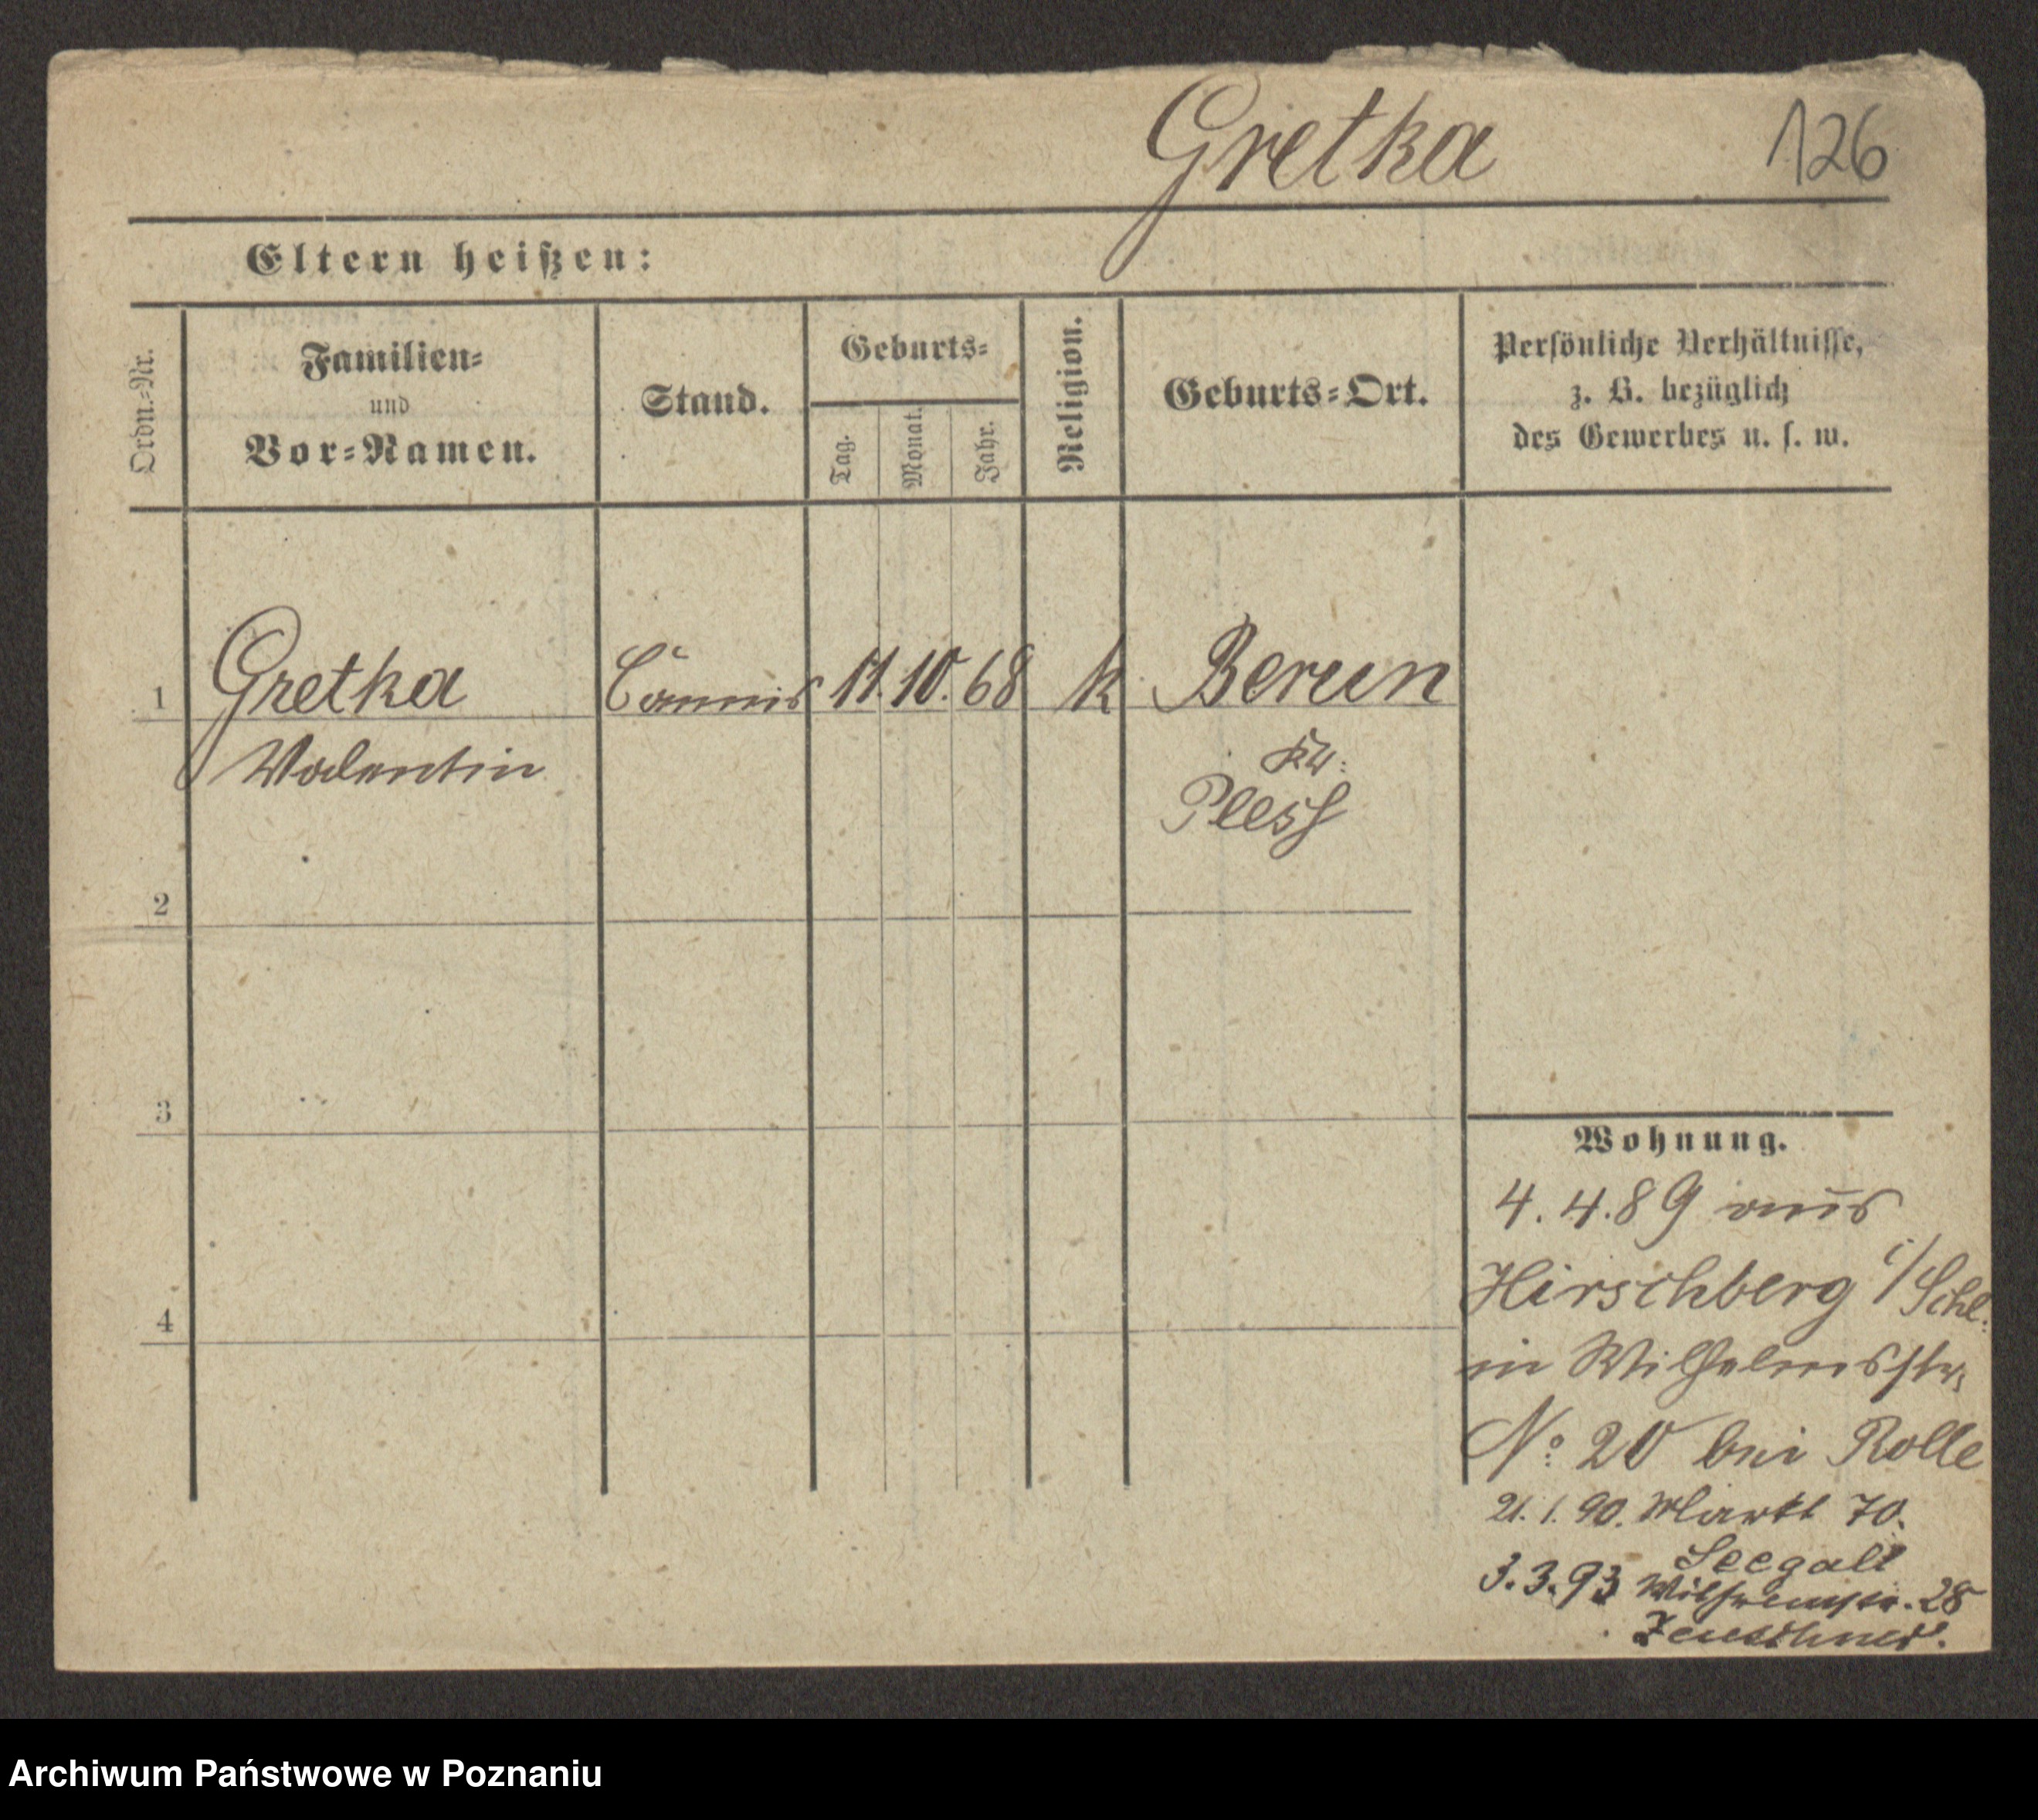 Gretka
126
Eltern heißen:
Ordn.-Nr.
Familien-
und
Vor-Namen.
Stand.
Geburts-
Tag.
Monat.
Jahr.
Religion.
Geburts-Ort.
Persönliche Verhältnisse,
z. B. bezüglich
des Gewerbes u. s. w.
1 Gretka Commis 11. 10. 68 k Berun
Valentin
Kr:
Pless
2
3
4
Wohnung.
4. 4. 89 aus
Hirschberg i/Schl.
in Wilhelmsstr.
No: 20 bei Rolle
21. 1. 90. Markt 70.
Seegall
3. 3. 93 Wilhelmstr. 28
Archiwum Państwowe w Poznaniu